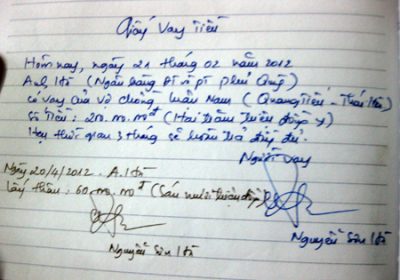 Giấy Vay Tiền
Hôm nay, ngày 21 tháng 02 năm 2012
Anh Hà (Ngân hàng ĐT và PT Phủ Quỳ)
có vay của vợ chồng Nam (Quang Tiến - Thái Hòa)
Số Tiền: 200.000.000đ (Hai trăm triệu đồng)
Hẹn thời gian 3 tháng sẽ hoàn trả đầy đủ.
Người vay
Ngày 20/4/2012. A. Hà
lấy thêm: 60.000.000đ (Sáu mươi triệu đồng)
Nguyễn Sơn Hà
Nguyễn Sơn Hà